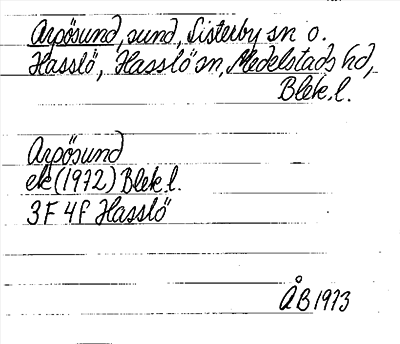 Arpösund, sund, Listerby sn o.
Hasslö, Hasslö sn, Medelstads hd,
Blek. l.
Arpösund
ek (1972) Blek l.
3F 4f Hasslö
ÅB 1973